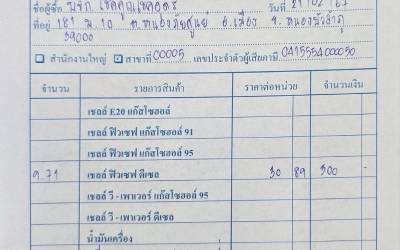 ชื่อผู้ซื้อ หจก. โชคคูณโชคอุดร วันที่ 21/02/67
ที่อยู่ 181 ม.10 ต.หนองภัยศูนย์ อ.เมือง จ.หนองบัวลำภู
39000
สำนักงานใหญ่ ☑ สาขาที่ 00005 เลขประจำตัวผู้เสียภาษี
จำนวน รายการสินค้า ราคาต่อหน่วย จำนวนเงิน
เชลล์ E20 แก๊สโซฮอล์
เชลล์ ฟิวเซฟ แก๊สโซฮอล์ 91
เชลล์ ฟิวเซฟ แก๊สโซฮอล์ 95
9.71 เชลล์ ฟิวเซฟ ดีเซล 30 89 300 -
เชลล์ วี - เพาเวอร์ แก๊สโซฮอล์ 95
เชลล์ วี - เพาเวอร์ ดีเซล
น้ำมันเครื่อง